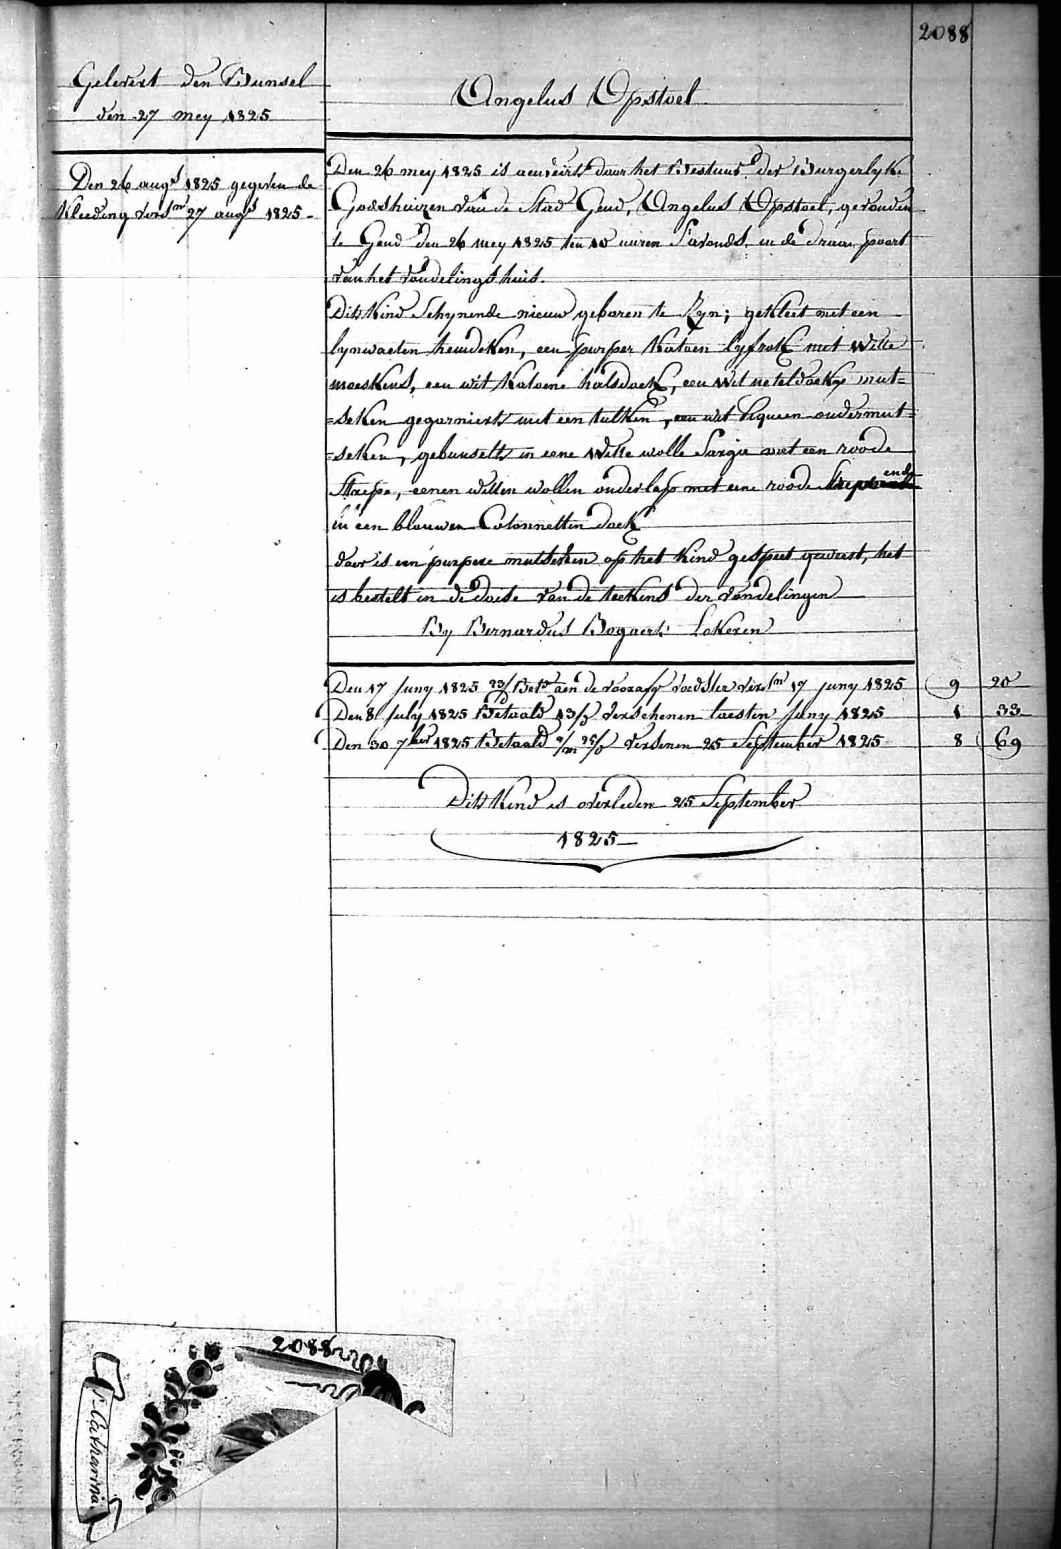 2088
Gelevert den Bunsel
den 27 mey 1825
Angelus Opstoel
Den 26 augt 1825 gegeven de
Kleeding versn 27 augt 1825
Den 26 mey 1825 is aenveirt door het Bestuur der Burgerlyke
Godshuizen van de Stad Gend, Angelus Opstoel, gevonden
te Gend den 26 mey 1825 ten 10 uuren S'avonds, in de Draai poort
van het vondelingshuis.
Dit Kind Schynende nieuw geboren te Zyn; gekleet met een
lynwaeten hemdeken, een purper Katoen lyfrok met witte
moeskens, een wit Katoene halsdoek, een wit neteldoekx mut=
=seken gegarniert met een tulken, een wit Piqueen ondermut=
=seken, gebunselt in eene Witte wolle Sargie met een roode
Streepe, eenen witten wollen onderlap met eene roode Streepe ende
in een blauwen Cotonnetten doek
daer is een purpere mutseken op het Kind gespeet geweest, het
is bestelt in de doose van de teekens der vondelingen
By Bernardus Bogaert Lokeren
Den 17 Juny 1825 23/ Bet aen de voorafg voedster versn 17 juny 1825 9 20
Den 8 July 1825 Betaald 13/ verschenen laesten Juny 1825 1 33
Den 30 7ber 1825 Betaald 2/m 25/ verschenen 25 September 1825 8 69
Dit Kind is overleden 25 September
1825
2088
S. Catharina